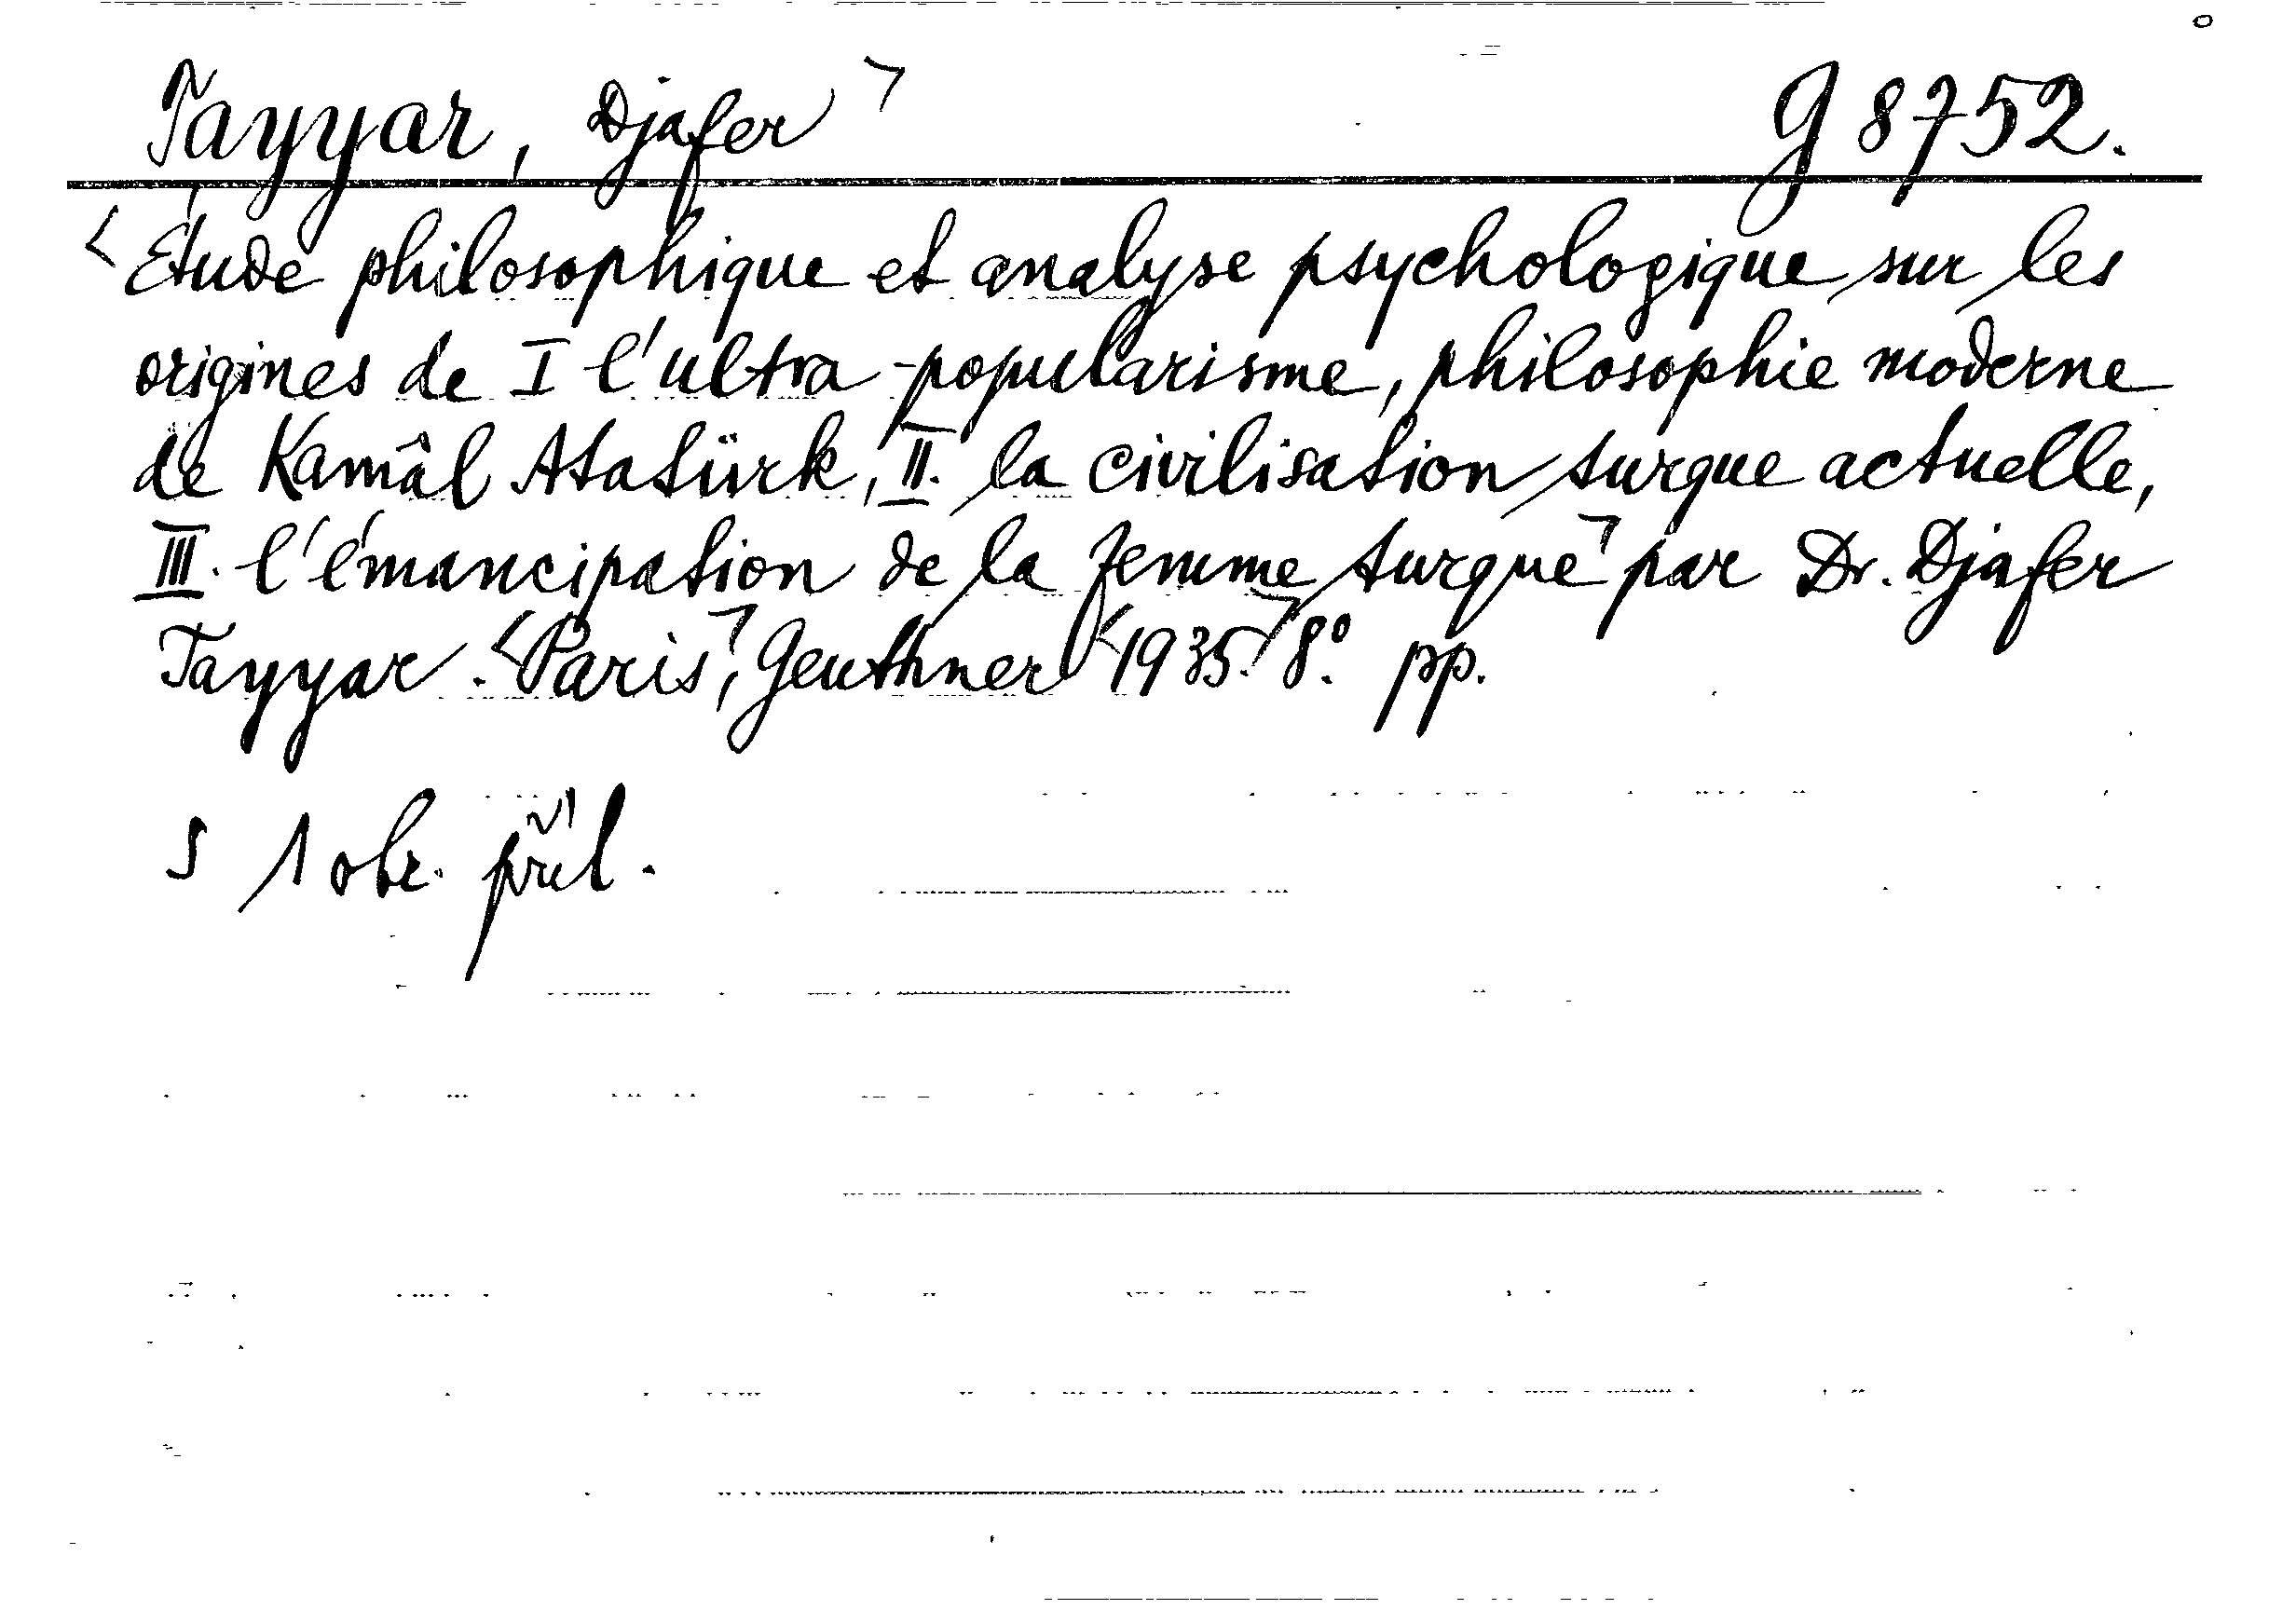 Tayyar, Djafer ┐ g 8752.
< Étude philosophique et analyse psychologique sur les
origines de I l'ultra-popularisme, philosophie moderne
de Kamâl Atatürk, II. la civilisation turque actuelle,
III. l'émancipation de la femme turque ┐ par Dr. Djafer
Tayyar. <Paris ┐, Geuthner <1935. ┐ 8°. pp.
S 1 obr. příl.